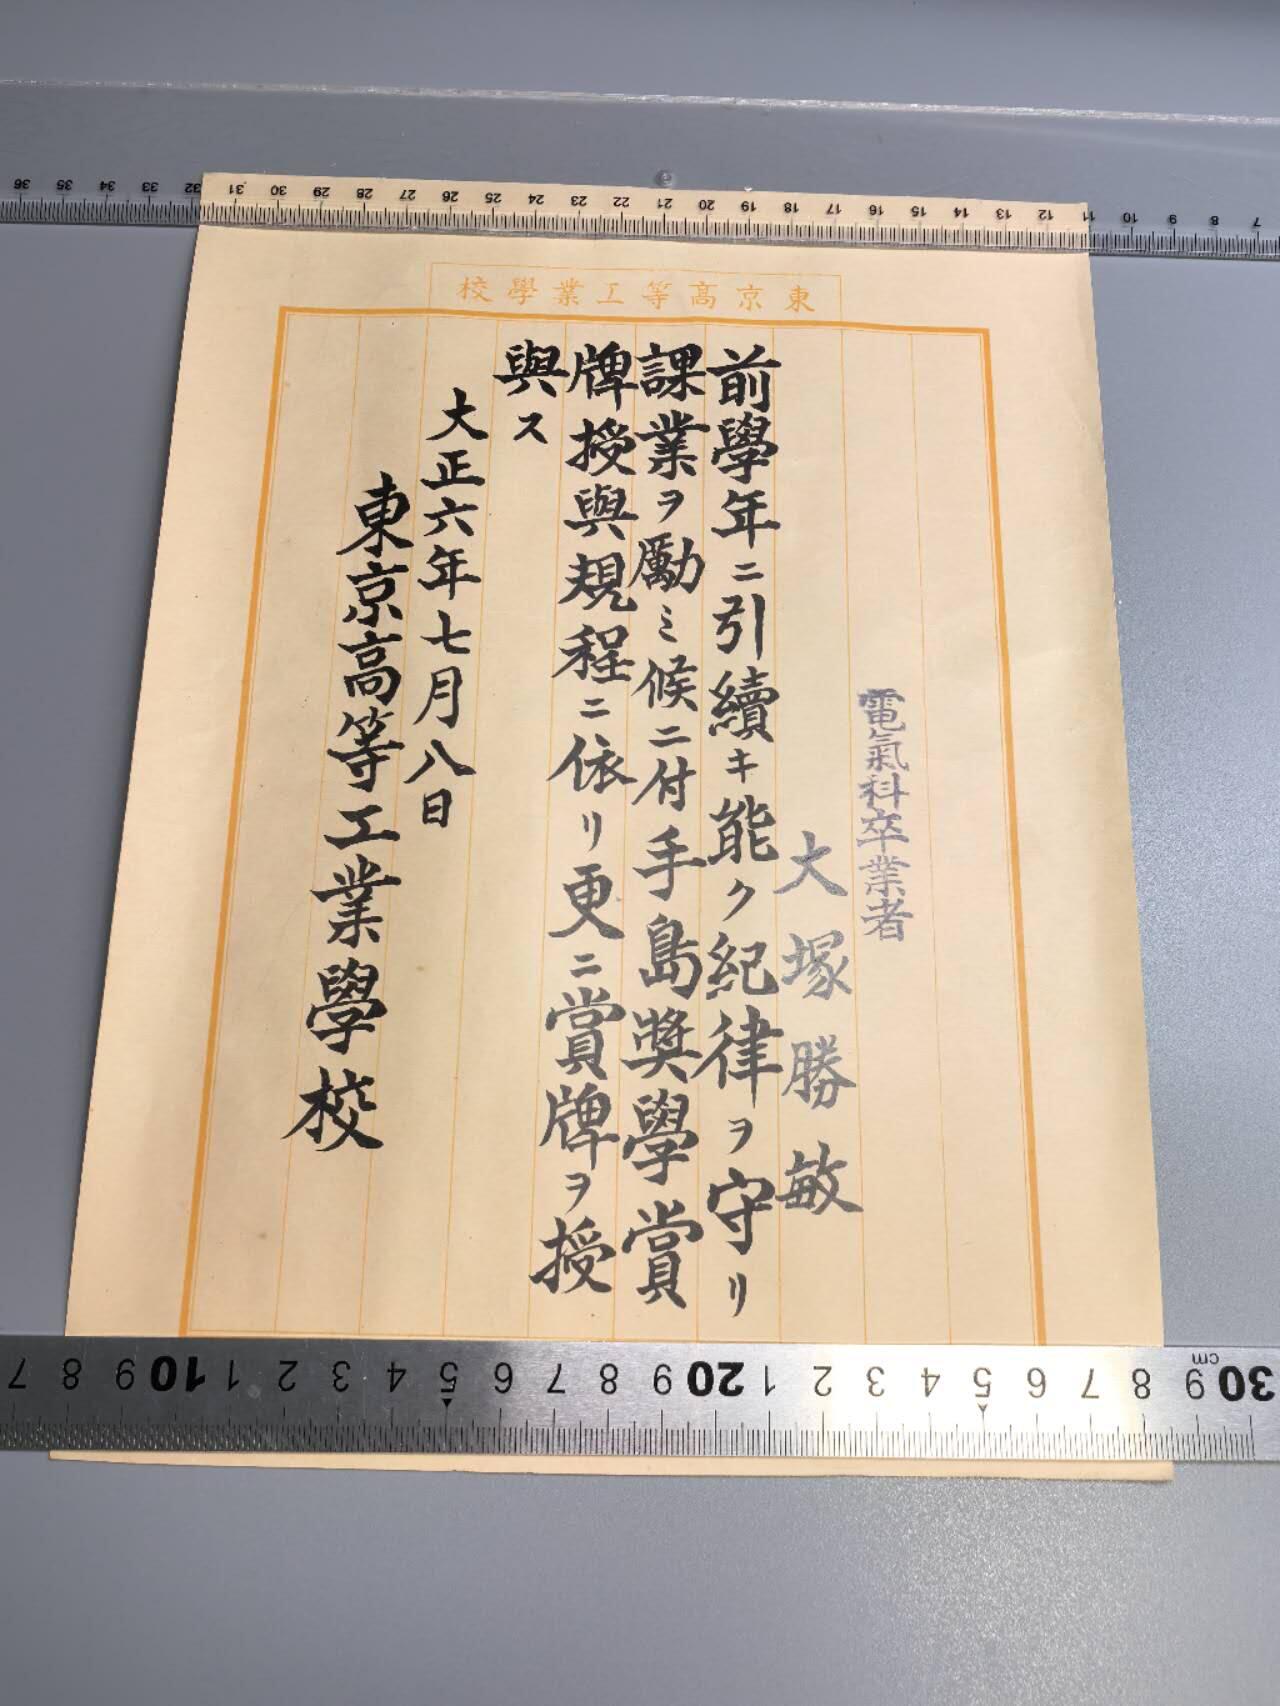 36 35 34 33 32 31 30 29 28 27 26 25 24 23 22 21 20 19 18 17 16 15 14 13 12 11 10 9 8 7
東京高等工業學校
電氣科卒業者
大塚勝敏
前學年ニ引續キ能ク紀律ヲ守リ
課業ヲ勵ミ候ニ付手島奬學賞
牌授與規程ニ依リ更ニ賞牌ヲ授
與ス
大正六年七月八日
東京高等工業學校
7 8 9 10 1 2 3 4 5 6 7 8 9 20 1 2 3 4 5 6 7 8 9 30
cm